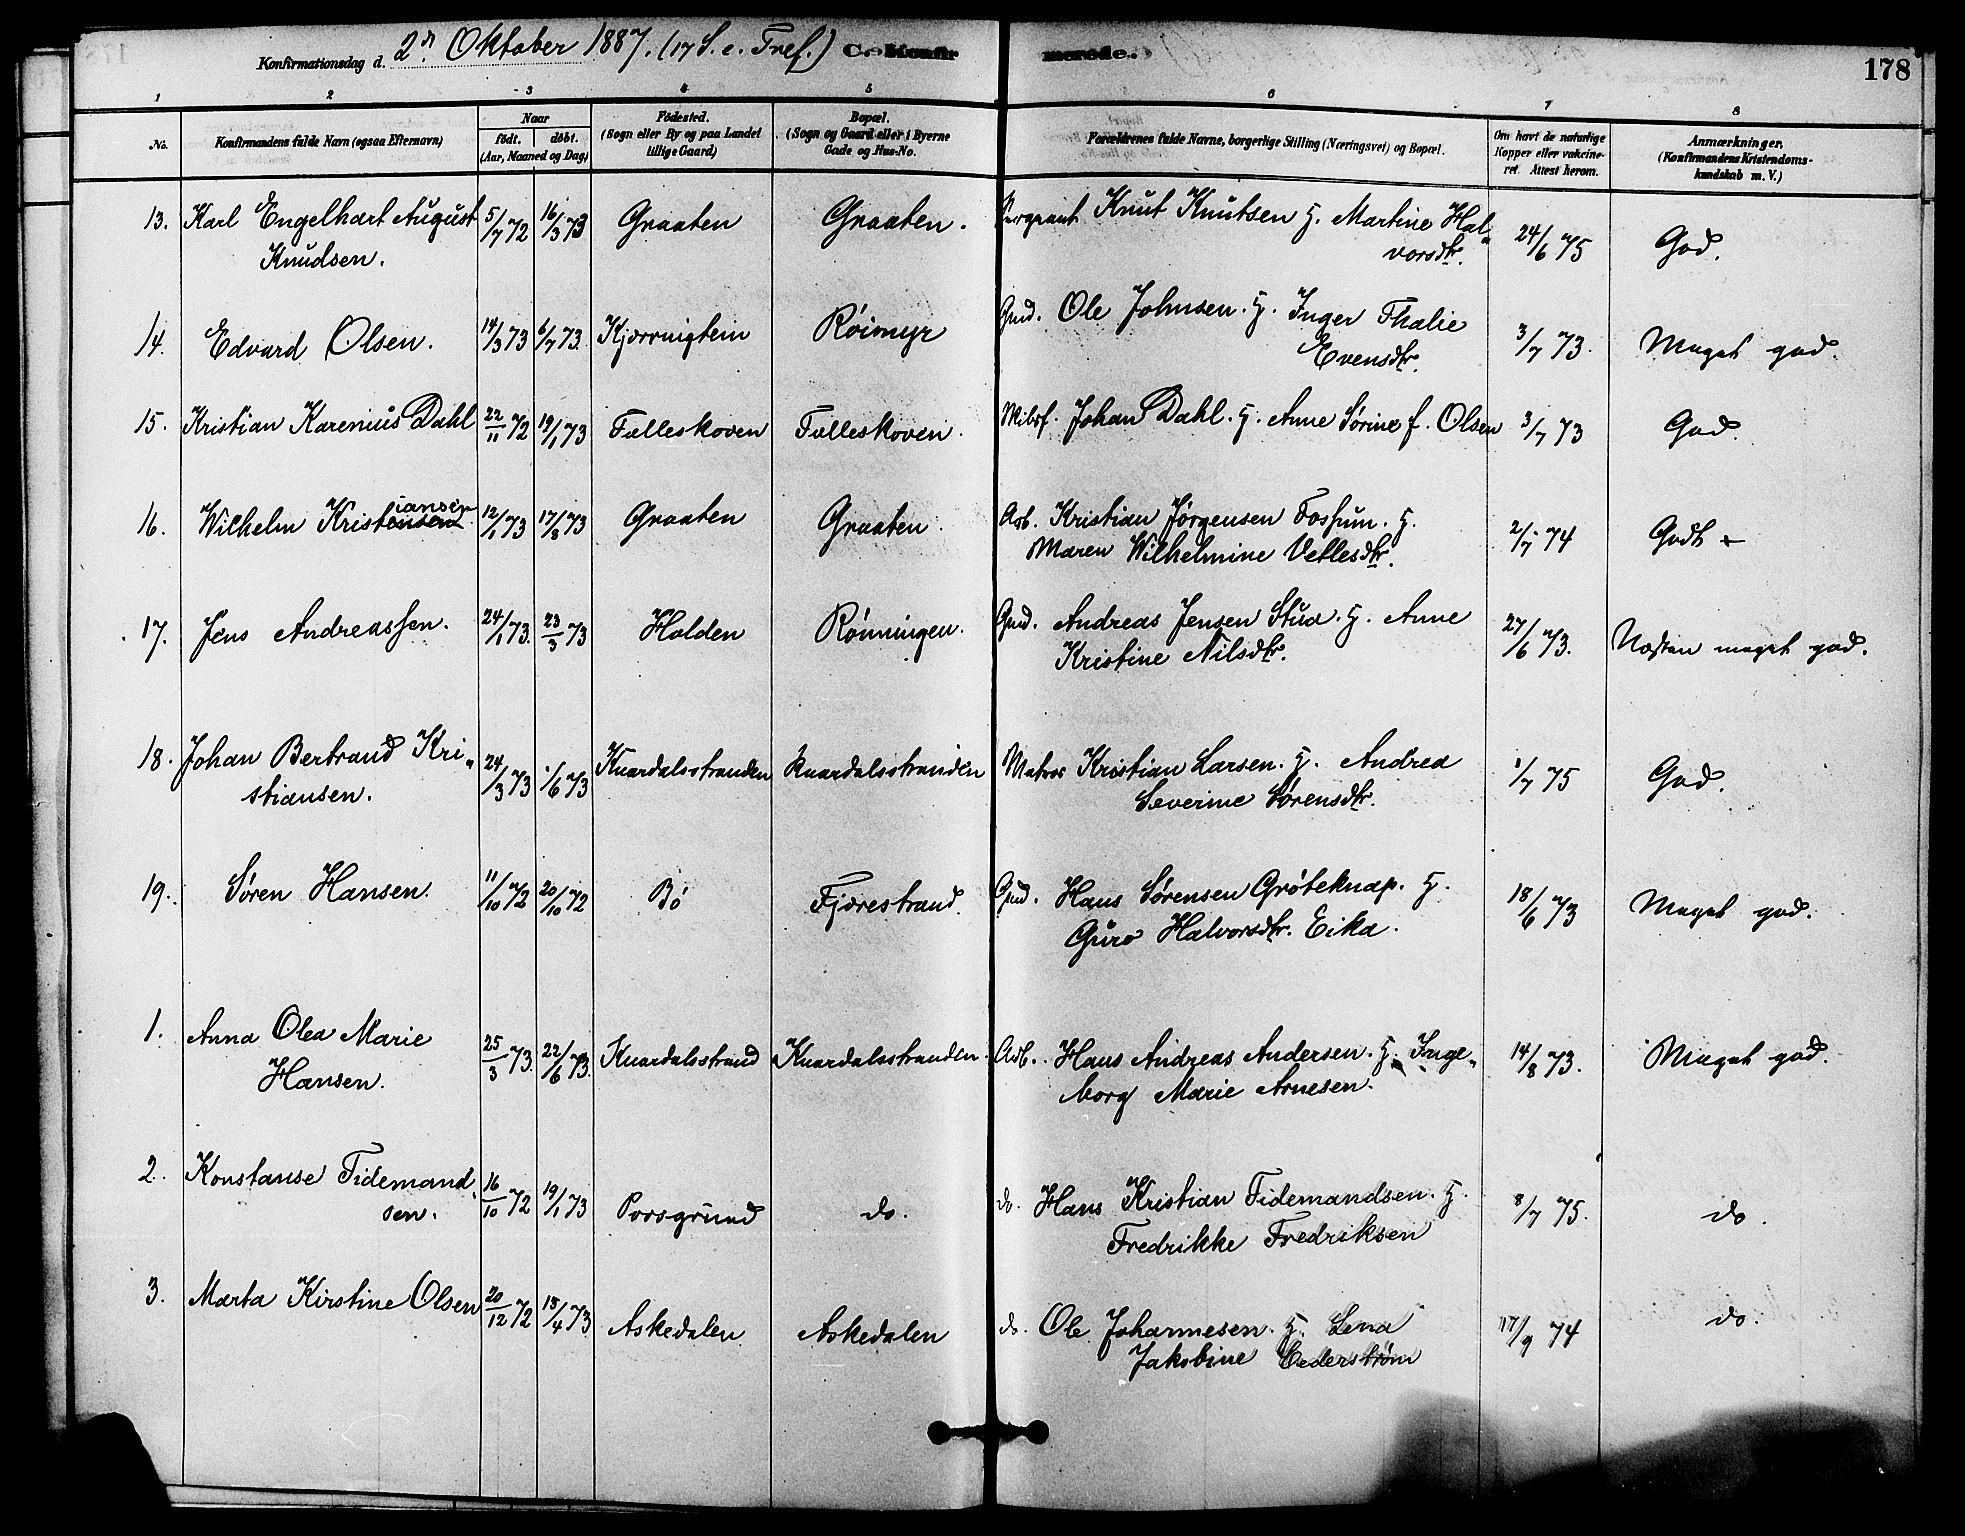 Konfirmationsdag d. 2den Oktober 1887. (17 S. e. Tref.) Konfirmerede. 178
1 2 3 4 5 6 7 8
No. Konfirmandens fulde Navn (ogsaa Efternavn) Naar født. døbt. (Aar, Maaned og Dag) Fødested. (Sogn eller By og paa Landet tillige Gaard) Bopæl. (Sogn og Gaard eller i Byerne Gade og Hus-No. Forældrenes fulde Navne, borgerlige Stilling (Næringsvei) og Bopæl. Om havt de naturlige Kopper eller vakcineret. Attest herom. Anmærkninger. (Konfirmandens Kristendomskundskab m. V.)
13. Karl Engelhart August 5/7 72 16/3 73 Graaten Graaten. Sergeant Knut Knutsen H. Martine Hal-
Knudsen. vorsdtr. 24/6 75 God.
14. Edvard Olsen. 14/3 73 6/7 73. Røimyr Gmd. Ole Johnsen. H. Inger Thalie
Evensdtr. 3/7 73. Meget god.
15. Kristian Karenius Dahl 22/11 72 19/1 73 Fulleskoven Fulleskoven. Johan Dahl. H. Anne Sørine f. Olsen 3/7 73 God.
16. Wilhelm Kristensen iansen 12/1 73 17/8 73 Graaten Graaten. Arb. Kristian Jørgensen Fossum. H.
Maren Wilhelmine Vetlesdtr. 2/7 74 Godt +
17. Jens Andreassen. 24/1 73. 23/3 73 Holden Rønningen. Gmd. Andreas Jensen Stua. H. Anne
Kristine Nilsdtr. 27/6 73. Næsten meget god.
18. Johan Bertrand Kri- 24/3 73 1/6 73 Knardalsstranden Knardalsstranden Matros Kristian Larsen. H. Andrea
stiansen. Severine Sørensdtr. 1/7 75 God.
19. Søren Hansen. 11/10 72 20/10 72 Bø Fjærestrand. Gmd. Hans Sørensen Grøteknap. H.
Guro Halvorsdtr. Eika. 18/6 73 Meget god.
1. Anna Olea Marie
Hansen. 25/3 73. 22/6 73. Knardalsstrand Knardalsstranden. Arb. Hans Andreas Andersen. H. Inge-
borg Marie Arnesen. 14/8 73. Meget god.
2. Konstanse Tidemand-
sen. 16/10 72 19/1 73 Porsgrund do. do. Hans Kristian Tidemandsen. H.
Fredrikke Fredriksen 8/7 75. do.
3. Marta Kirstine Olsen 20/12 72 18/4 73 Askedalen Askedalen do. Ole Johannesen. H. Lena
Jakobine Cederstrøm 17/9 74 do.